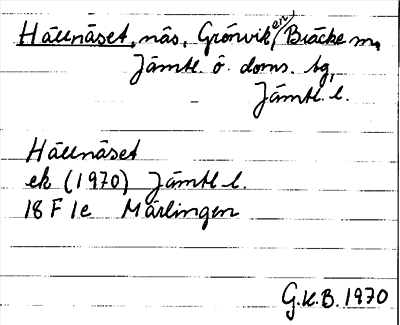 Hällnäset, näs, Grönviken, Bräcke m,
Jämtl. ö. doms. tg,
Jämtl. l.
Hällnäset
ek (1970) Jämtl l.
18 F 1e Märlingen
G.K.B. 1970